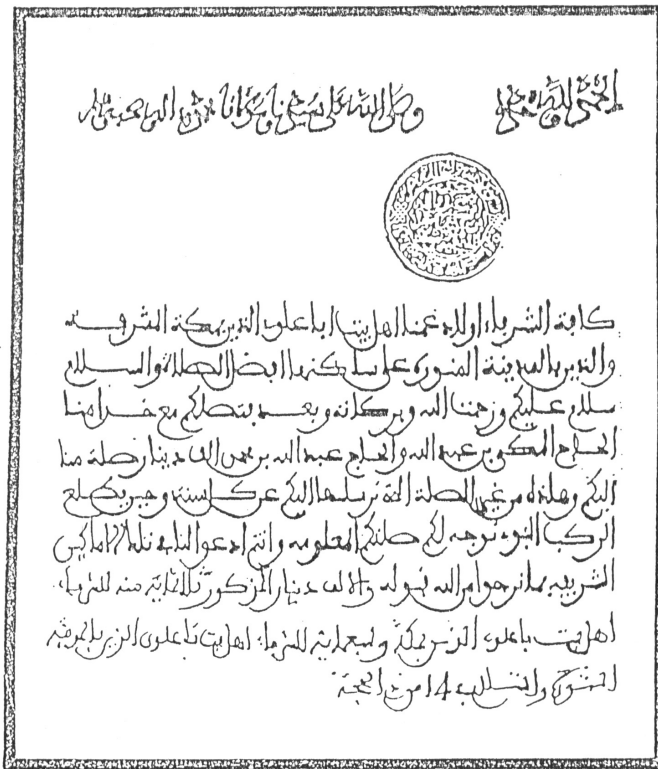 الحمد لله وحده وصلى الله على سيدنا ومولانا محمد وآله وصحبه
كافة الشرفاء اولاد عمنا اهل بيت ابا علوي الذين بمكة المشرفة
والذين بالمدينة المنورة على ساكنها افضل الصلاة والسلام
سلام عليكم ورحمت الله وبركاته وبعد يتصلكم مع خدامنا
الحاج المكي بن عبد الله والحاج عبد الله بن يحيى الف دينار صلة منا
اليكم وهذه من غير الصلة التي نرسلها اليكم عن كل سنة وحين يطلع
الركب النبوي نوجه لكم صلتكم المعلومة وانتم ادعو الناس تلك الاماكن
الشريفة ما نرجوا من الله قبوله والالف دينار المذكور ثلاثماية منه للشرفاء
اهل بيت باعلوي الذين بمكة وسبعماية للشرفاء اهل بيت باعلوي الذين بالمدينة
المنورة والسلام 14 من ذي الحجة